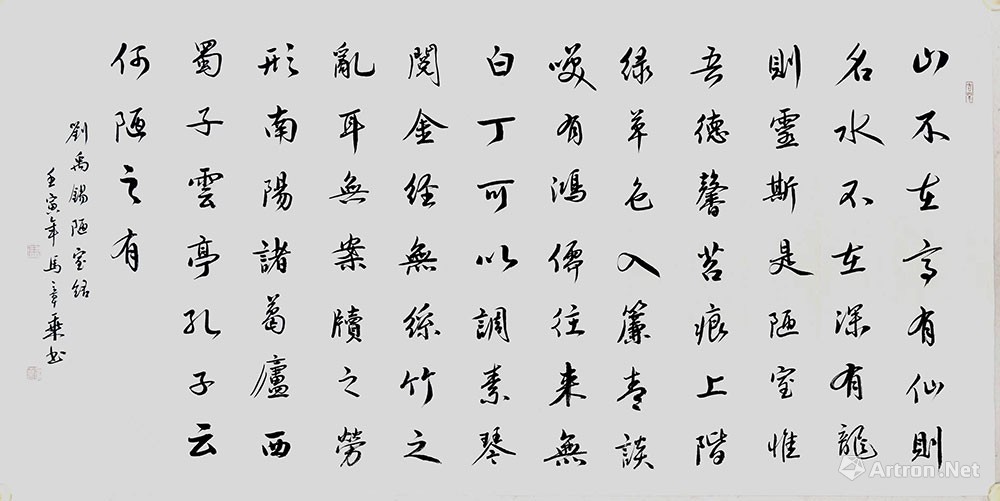 山不在高有仙則
名水不在深有龍
則靈斯是陋室惟
吾德馨苔痕上階
綠草色入簾青談
咲有鴻儒往來無
白丁可以調素琴
閱金經無絲竹之
亂耳無案牘之勞
形南陽諸葛廬西
蜀子雲亭孔子云
何陋之有
劉禹錫陋室銘
壬寅年馬章乘書
Artron.Net